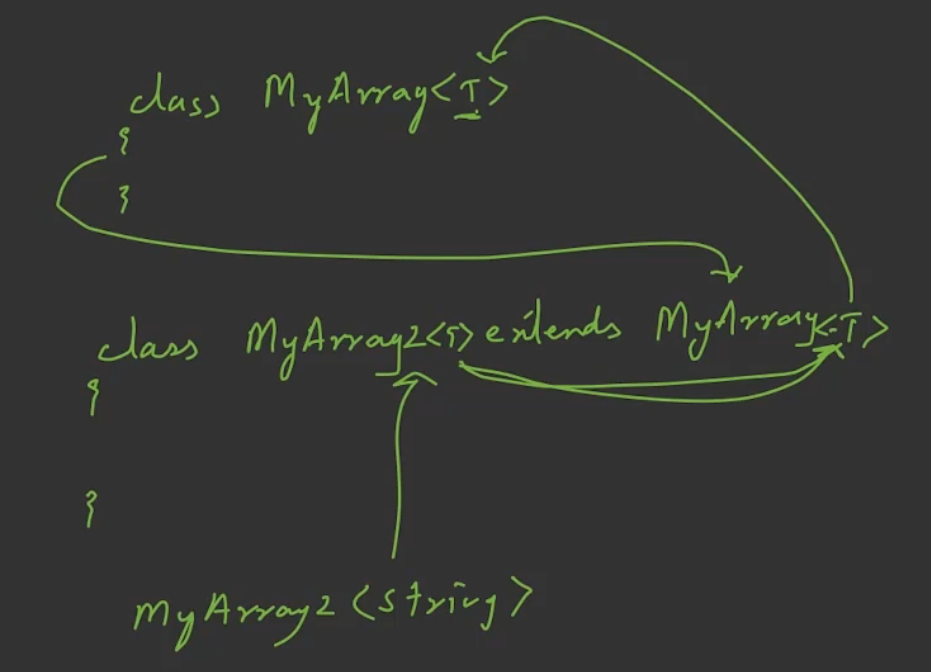 class MyArray<T>
{
}
class MyArray2<T> extends MyArray<T>
{
}
MyArray2<String>